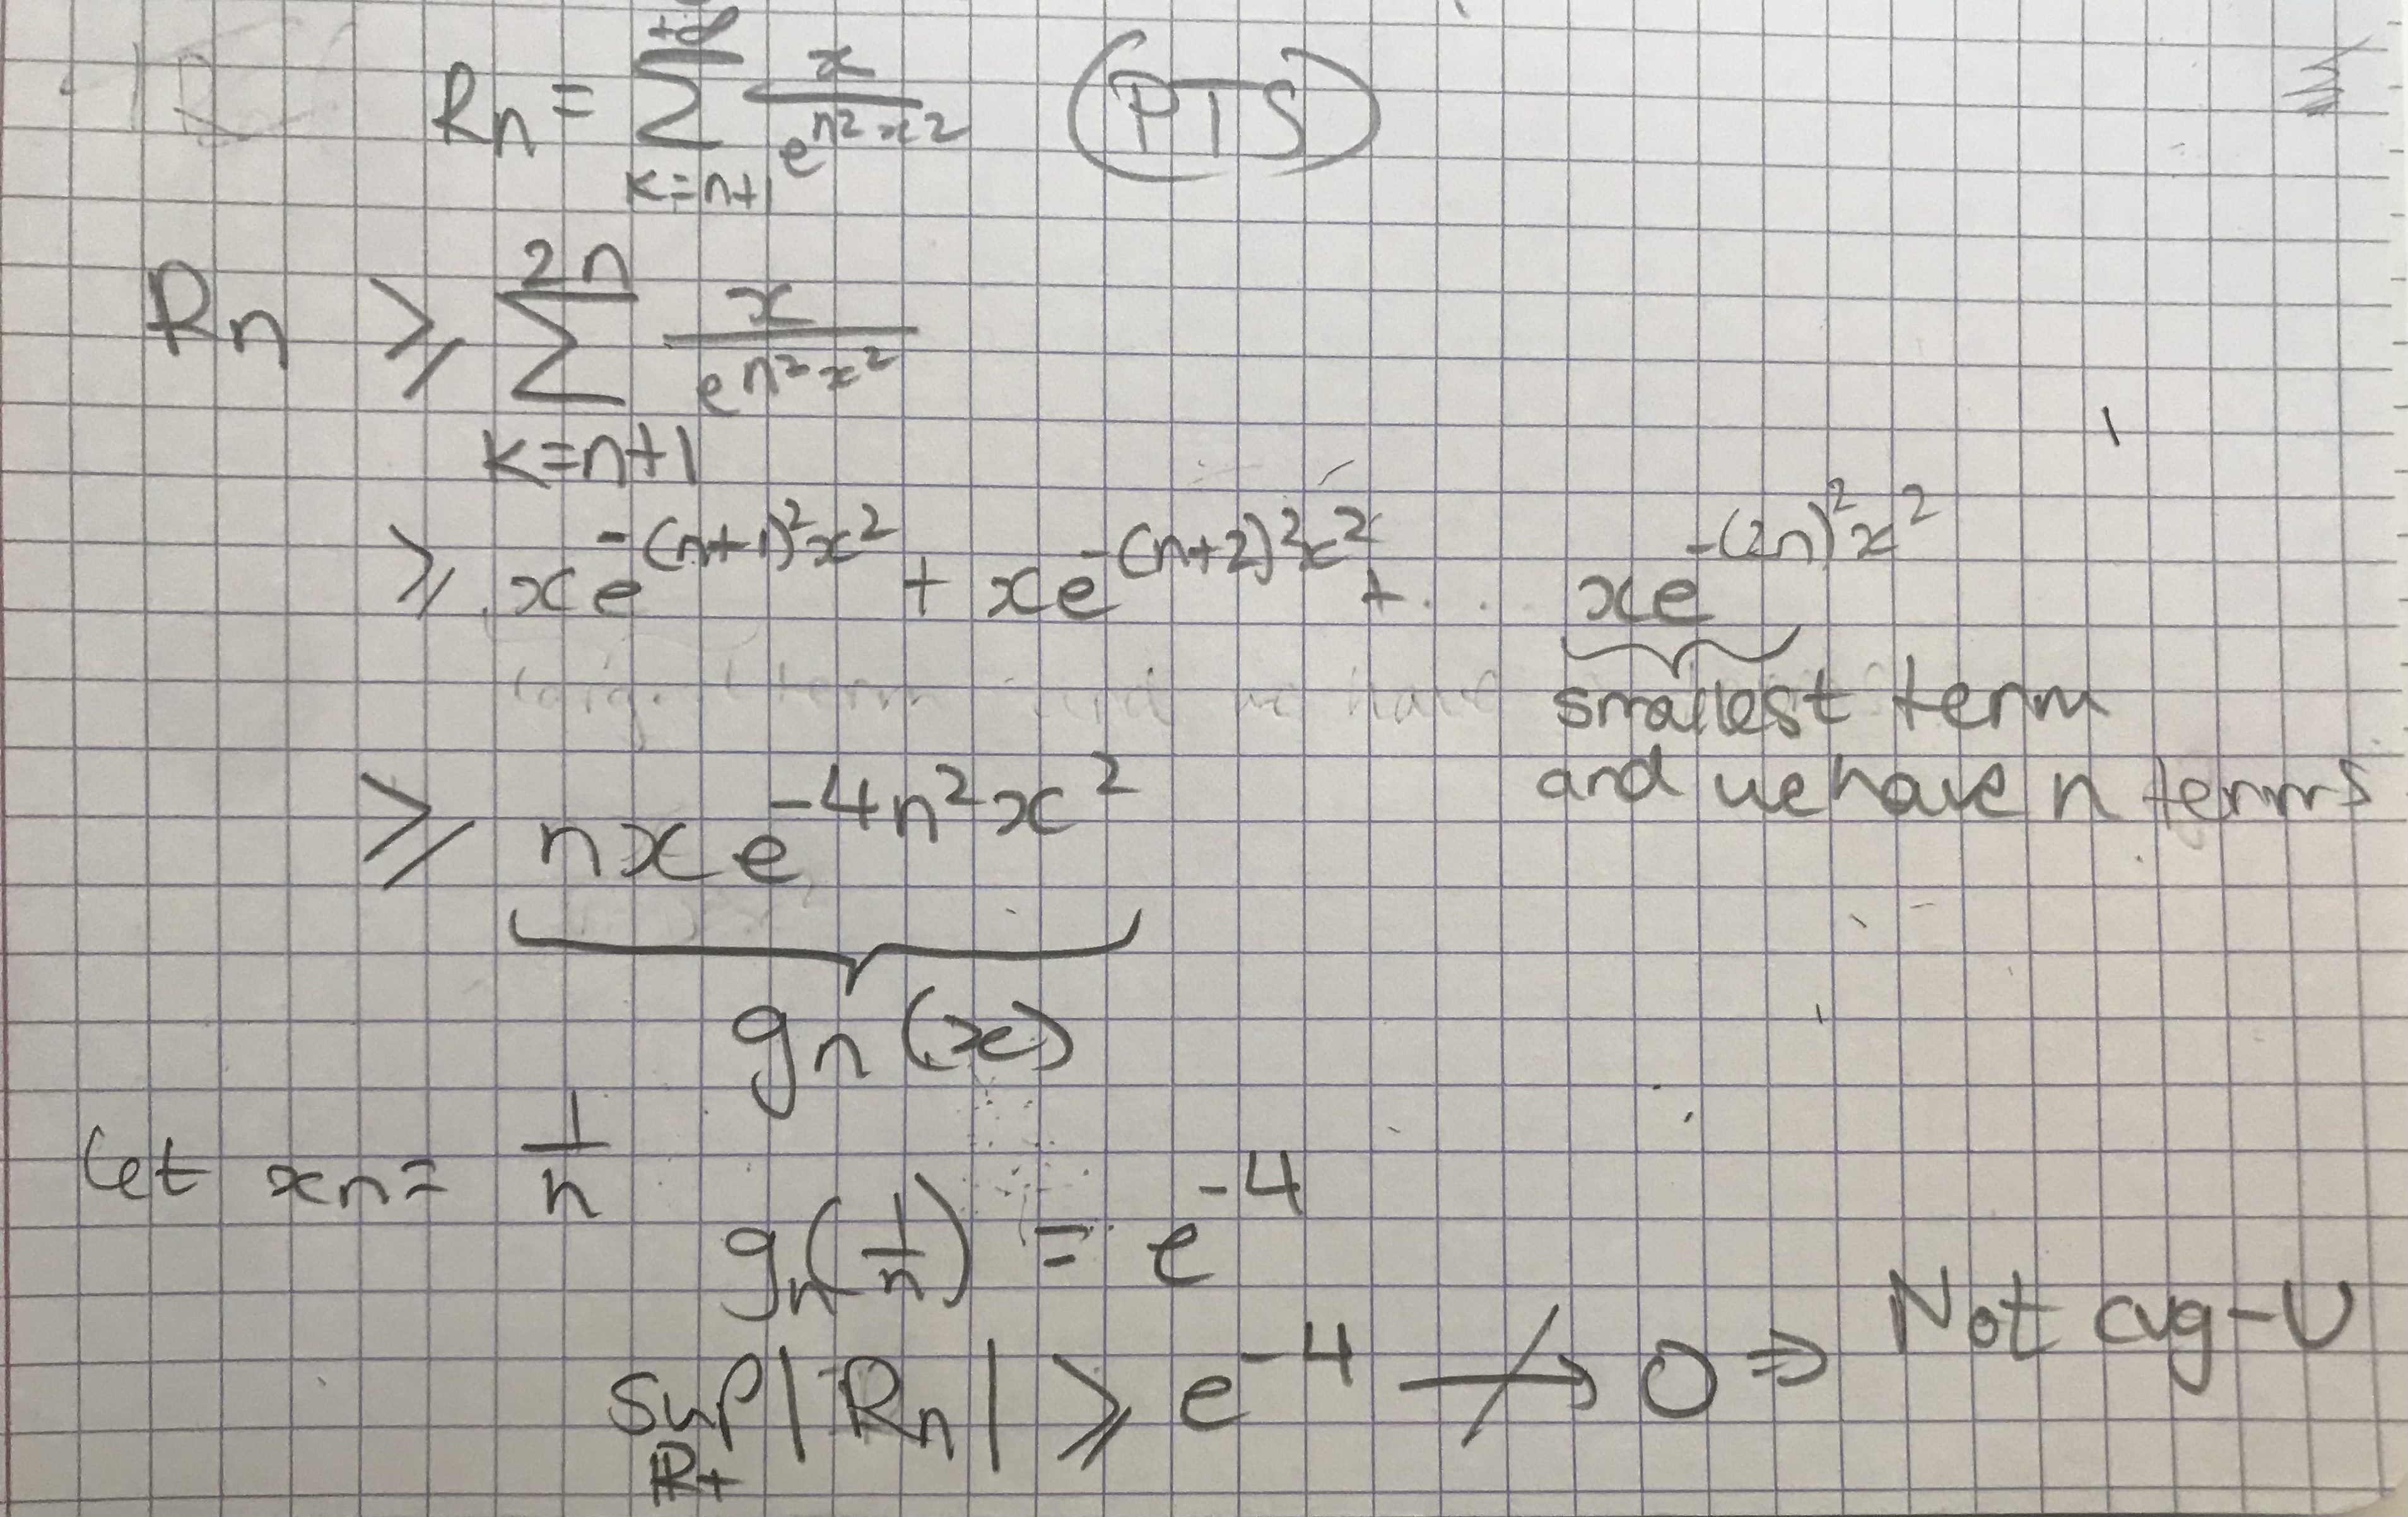 Rn = +∞ ∑ k=n+1 x / e^(n²x²) (PTS)
Rn ⩾ 2n ∑ k=n+1 x / e^(n²x²)
⩾ xe^(-(n+1)²x²) + xe^(-(n+2)²x²) + ... xe^(-(2n)²x²)
smallest term
and we have n terms
⩾ nxe^(-4n²x²)
gn(x)
let xn = 1/n
gn(1/n) = e^(-4)
sup ℝ+ |Rn| ⩾ e^(-4) ↛ 0 ⇒ Not cvg-U